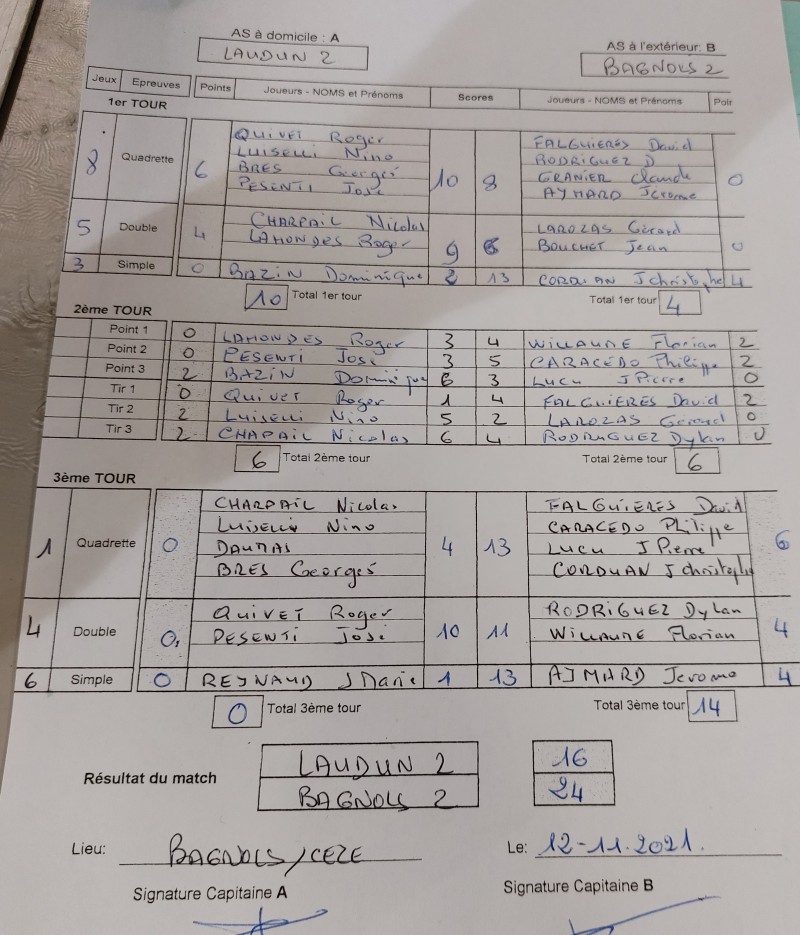 AS à domicile : A
LAUDUN 2
AS à l'extérieur: B
BAGNOLS 2
Jeux Epreuves Points Joueurs - NOMS et Prénoms Scores Joueurs - NOMS et Prénoms Poir
1er TOUR
8 Quadrette 6 10 8 0
QUIVET Roger FALGUIERES David
LUISELLI Nino RODRIGUEZ D
BRES Georges GRANIER Claude
PESENTI José AYMARD Jerome
5 Double 4 9 6 0
CHARPAIL Nicolas LAROZAS Gérard
LAMONDES Roger BOUCHET Jean
3 Simple 0 BAZIN Dominique 2 13 CORDUAN J christophe 4
10 Total 1er tour Total 1er tour 4
2ème TOUR
Point 1 0 LAMONDES Roger 3 4 WILLAUME Florian 2
Point 2 0 PESENTI José 3 5 CARACEDO Philippe 2
Point 3 2 BAZIN Dominique 6 3 LUCU J Pierre 0
Tir 1 0 QUIVET Roger 1 4 FALGUIERES David 2
Tir 2 2 LUISELLI Nino 5 2 LAROZAS Gérard 0
Tir 3 2 CHAPAIL Nicolas 6 4 RODRIGUEZ Dylan 0
6 Total 2ème tour Total 2ème tour 6
3ème TOUR
1 Quadrette 0 4 13 6
CHARPAIL Nicolas FALGUIERES David
LUISELLI Nino CARACEDO Philippe
DAUMAS LUCU J Pierre
BRES Georges CORDUAN J christophe
4 Double 0, 10 11 4
QUIVET Roger RODRIGUEZ Dylan
PESENTI José WILLAUME Florian
6 Simple 0 REYNAUD J Marie 1 13 AJMARD Jerome 4
0 Total 3ème tour Total 3ème tour 14
Résultat du match
LAUDUN 2 16
BAGNOLS 2 24
Lieu: BAGNOLS/CEZE Le: 12-11.2021.
Signature Capitaine A Signature Capitaine B